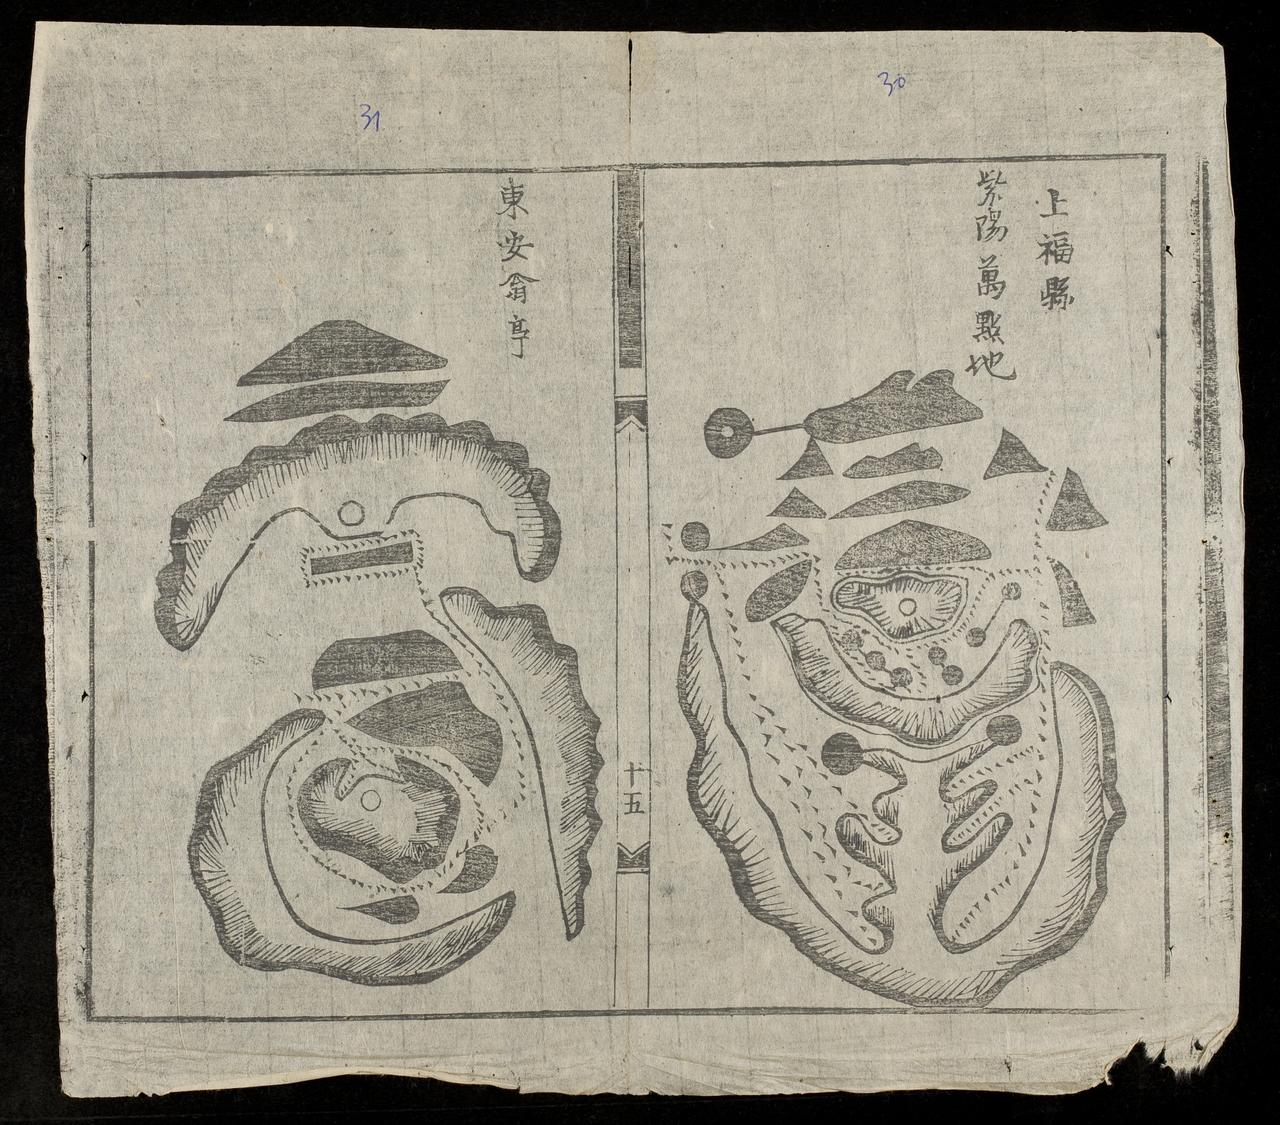 30
上福縣
紫陽萬點地
十五
31
東安翁亭